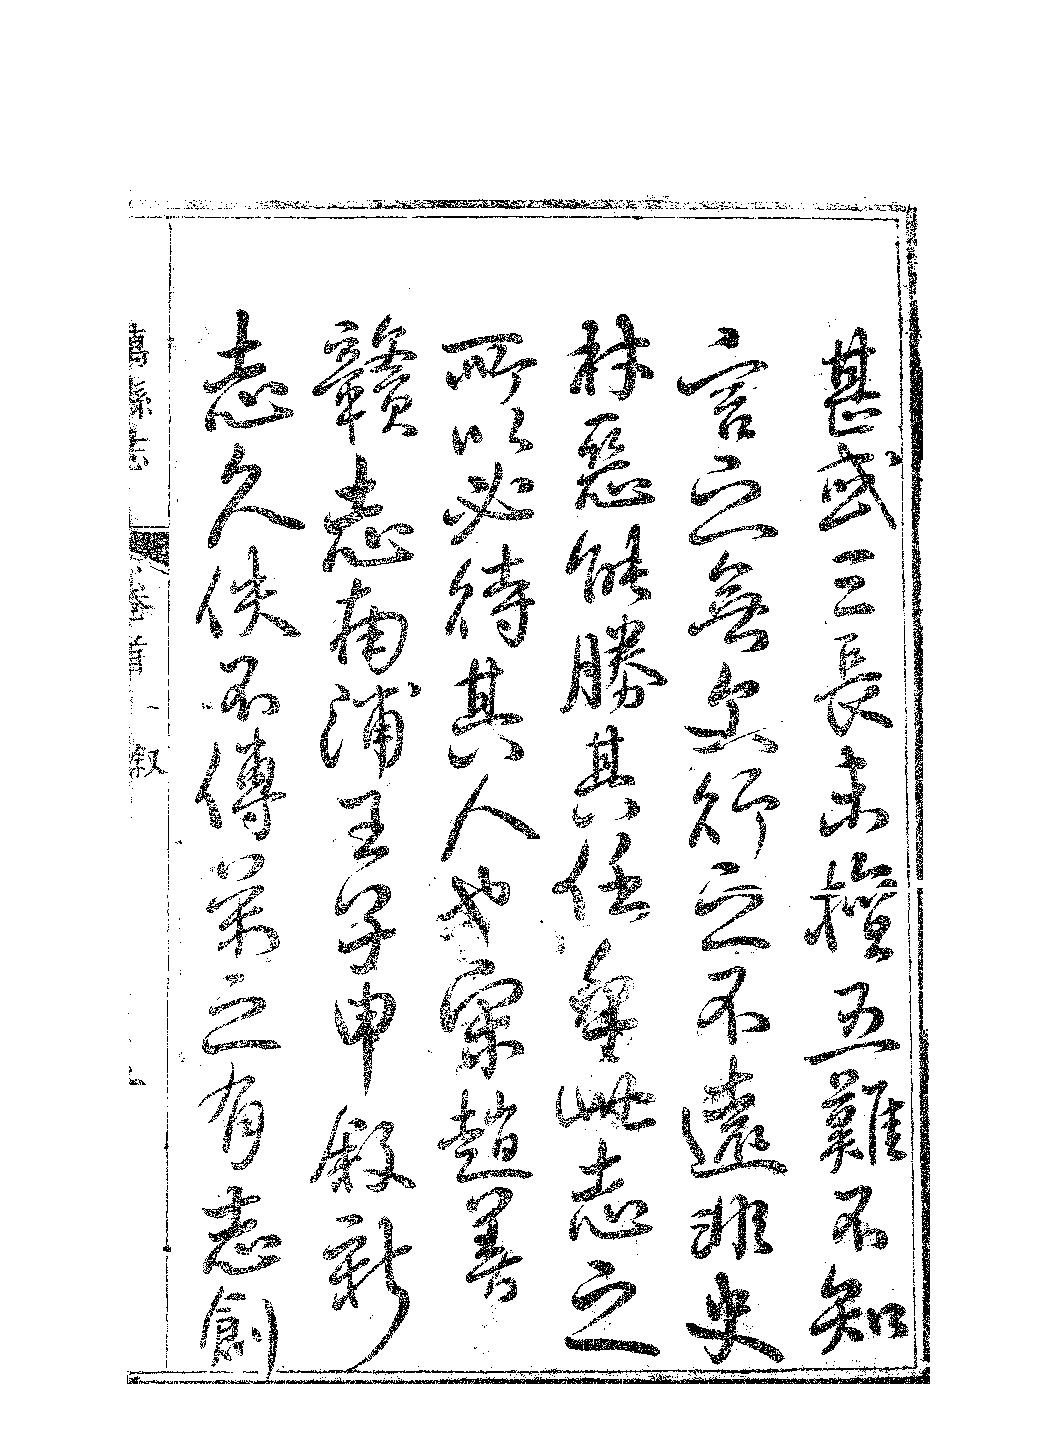 甚或三長未擅五難不知
言之無文行之不遠非史
材惡能勝其任此志之
所以必待其人也宋趙善
贛志南浦王子申敍新
志久佚不傳萬之有志創
萬縣志 卷首 叙